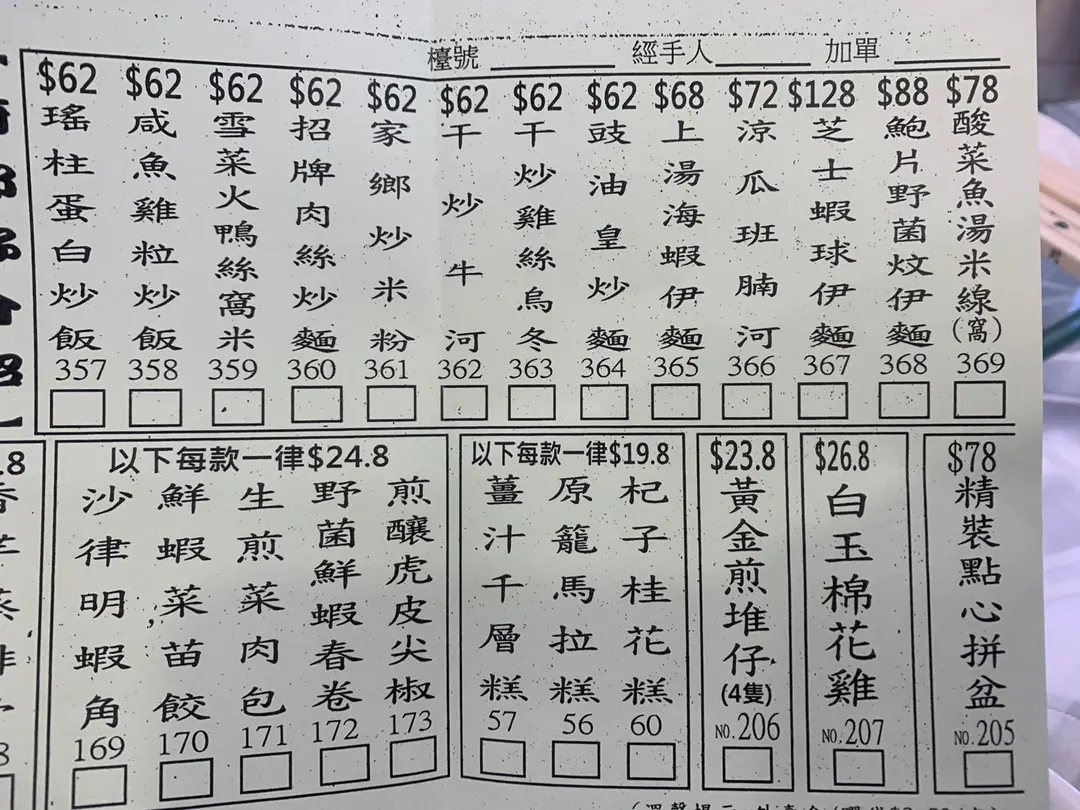 檯號 經手人 加單
$62 瑤柱蛋白炒飯 357
$62 咸魚雞粒炒飯 358
$62 雪菜火鴨絲窩米 359
$62 招牌肉絲炒麵 360
$62 家鄉炒米粉 361
$62 干炒牛河 362
$62 干炒雞絲烏冬 363
$62 豉油皇炒麵 364
$68 上湯海蝦伊麵 365
$72 涼瓜班腩河 366
$128 芝士蝦球伊麵 367
$88 鮑片野菌炆伊麵 368
$78 酸菜魚湯米線(窩) 369
以下每款一律$24.8
沙律明蝦角 169
鮮蝦菜苗餃 170
生煎菜肉包 171
野菌鮮蝦春卷 172
煎釀虎皮尖椒 173
以下每款一律$19.8
薑汁千層糕 57
原籠馬拉糕 56
杞子桂花糕 60
$23.8
黃金煎堆仔(4隻)
NO.206
$26.8
白玉棉花雞
NO.207
$78
精裝點心拼盆
NO.205